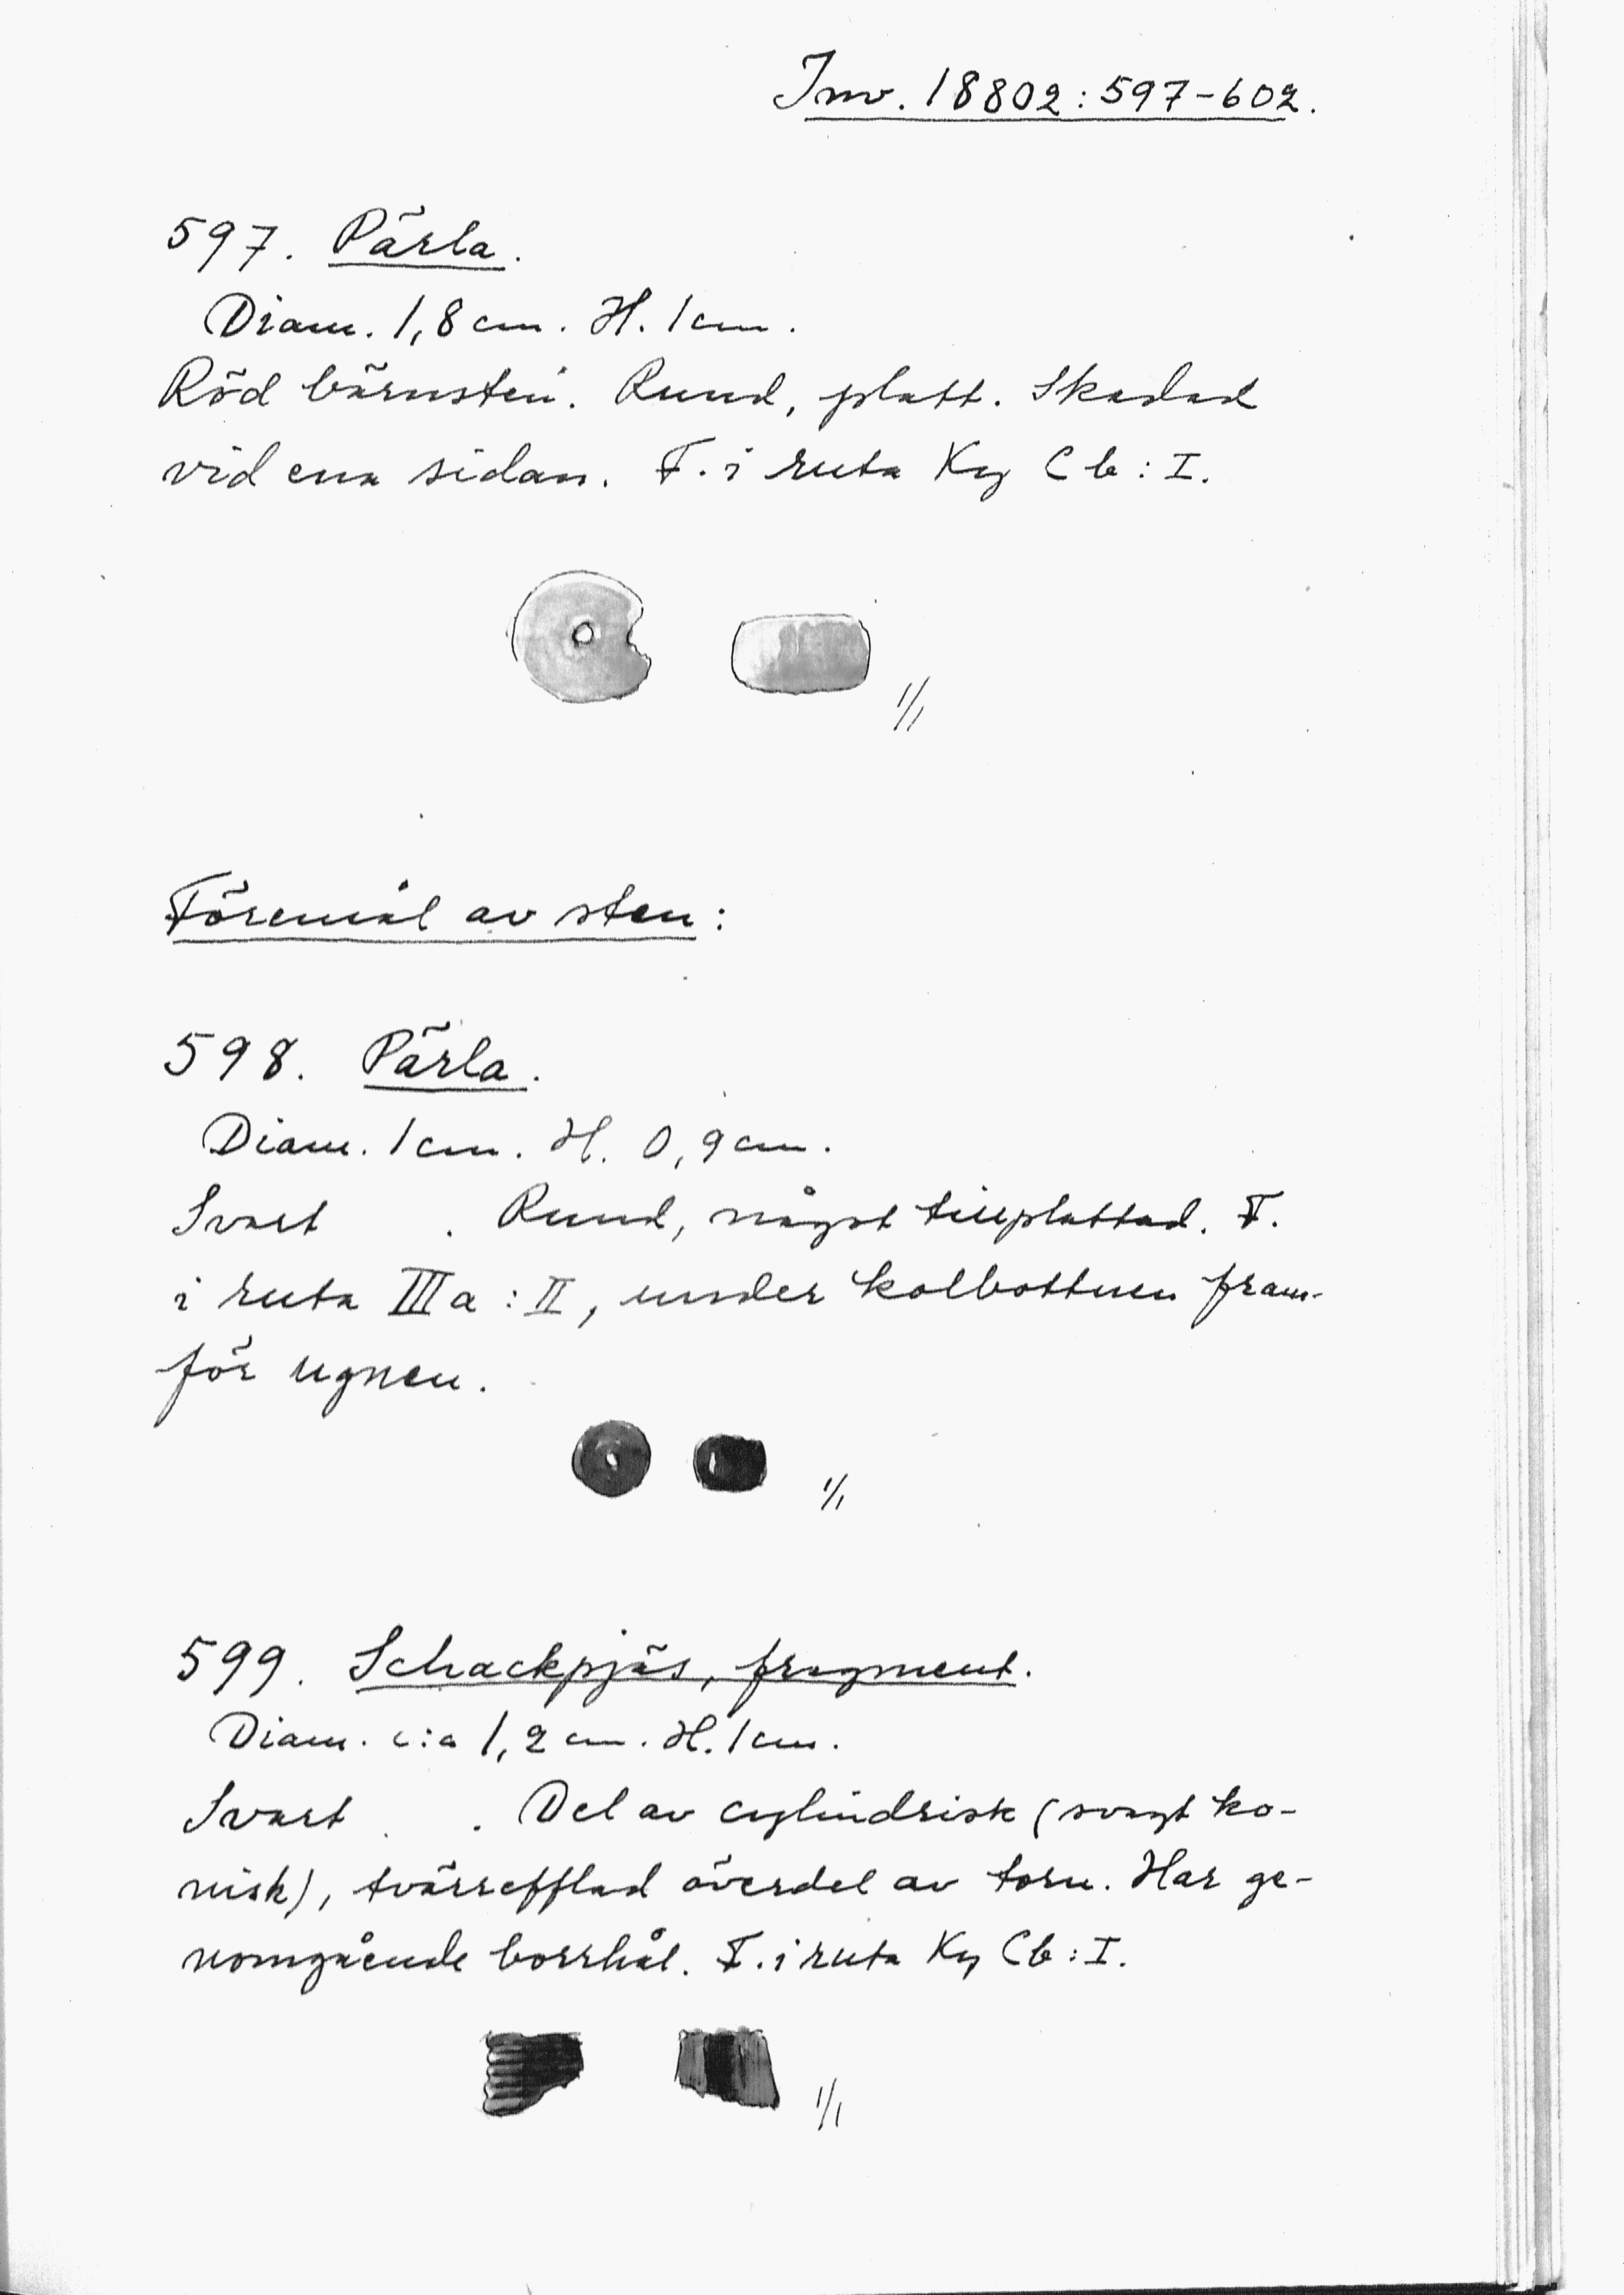 Inv. 18802:597-602.
597. Pärla.
Diam. 1,8 cm. H. 1 cm.
Röd bärnsten. Rund, platt. Skadad
vid ena sidan. F. i ruta Ky Cb:I.
1/1
Föremål av sten:
598. Pärla.
Diam. 1 cm. H. 0,9 cm.
Svart . Rund, något tillplattad. F.
i ruta IIIa:II, under kolbottnen fram-
för ugnen.
1/1
599. Schackpjäs, fragment.
Diam. c:a 1,2 cm. H. 1 cm.
Svart . Del av cylindrisk (svagt ko-
nisk), tvärrefflad överdel av torn. Har ge-
nomgående borrhål. F. i ruta Ky Cb:I.
1/1